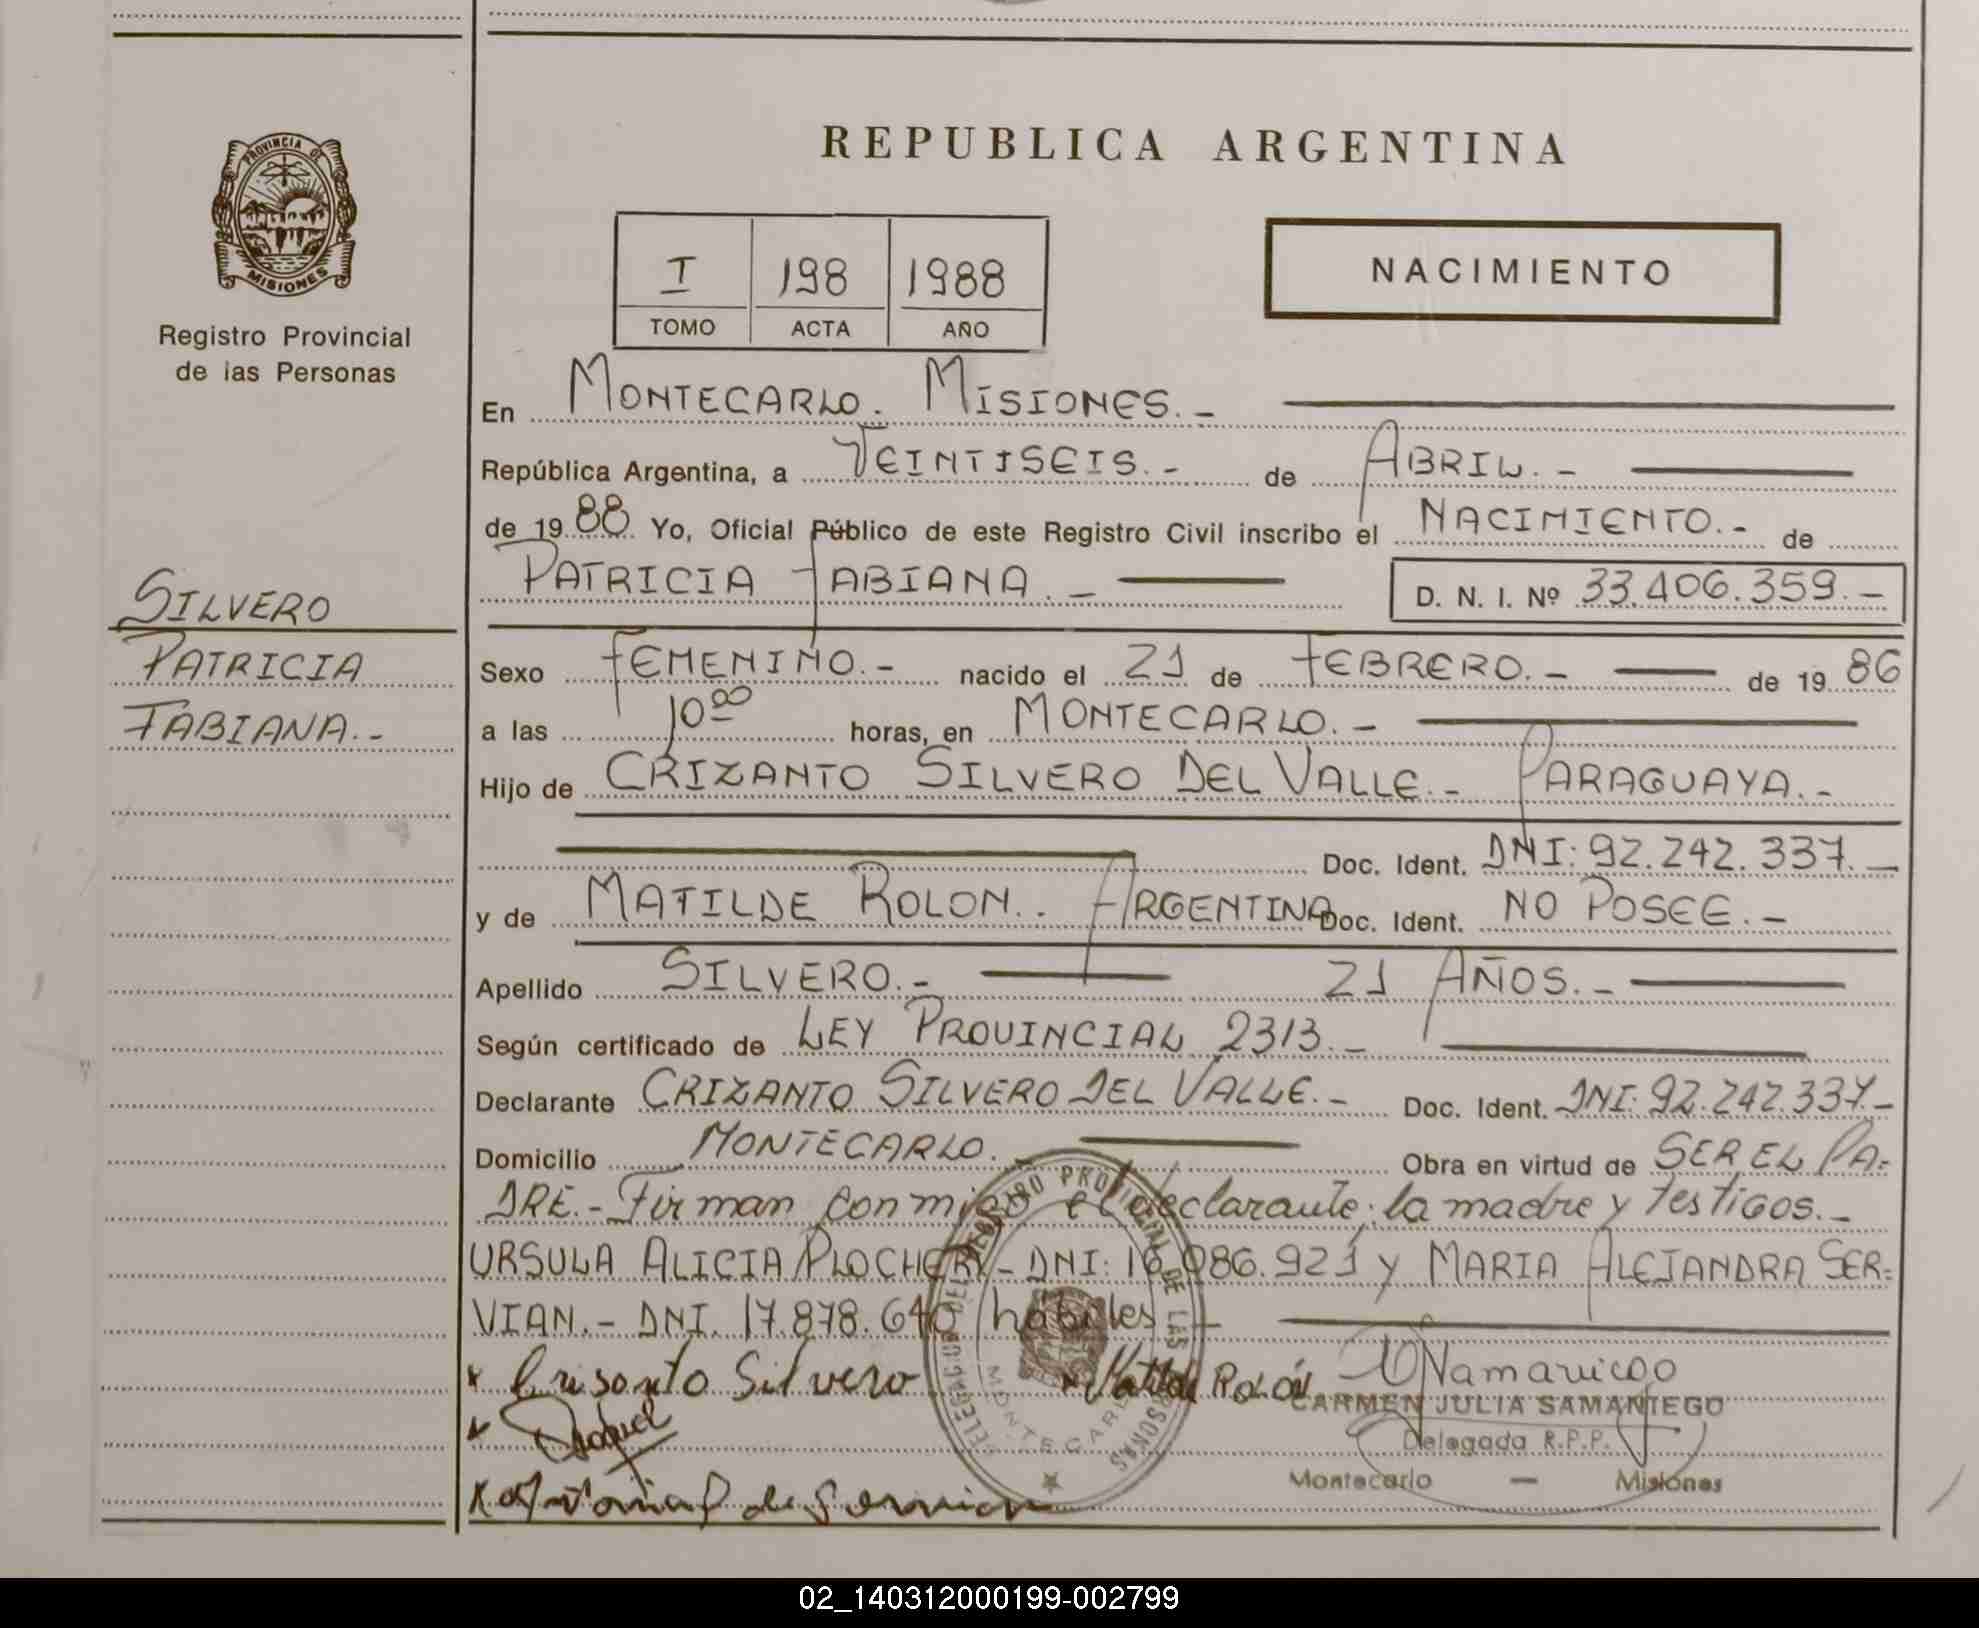 REPUBLICA ARGENTINA
PROVINCIA DE
MISIONES
Registro Provincial
de las Personas
I 198 1988
TOMO ACTA AÑO
NACIMIENTO
En MONTECARLO. MISIONES.-
República Argentina, a VEINTISEIS.- de ABRIL.-
de 1988 Yo, Oficial Público de este Registro Civil inscribo el NACIMIENTO.- de
PATRICIA FABIANA.- D. N. I. Nº 33.406.359.-
SILVERO
PATRICIA
FABIANA.-
Sexo FEMENINO.- nacido el 21 de FEBRERO.- de 1986
a las 10⁰⁰ horas, en MONTECARLO.-
Hijo de CRIZANTO SILVERO DEL VALLE.- PARAGUAYA.-
Doc. Ident. DNI: 92.242.337.-
y de MATILDE ROLON.. ARGENTINA Doc. Ident. NO POSEE.-
Apellido SILVERO.- 21 AÑOS.-
Según certificado de LEY PROVINCIAL 2313.-
Declarante CRIZANTO SILVERO DEL VALLE.- Doc. Ident. DNI: 92.242.337.-
Domicilio MONTECARLO.- Obra en virtud de SER EL PA=
DRE.- Firman con migo el declarante; la madre y testigos.-
URSULA ALICIA PLOCHER.- DNI: 16.086.921 y MARIA ALEJANDRA SER=
VIAN.- DNI. 17.878.640 hábiles.-
x Crisanto Silvero x Matilde Rolón
CARMEN JULIA SAMANIEGO
Delegada R.P.P.
Montecarlo — Misiones
DELEGACION DEL REGISTRO PROVINCIAL DE LAS PERSONAS
MONTECARLO
02_140312000199-002799